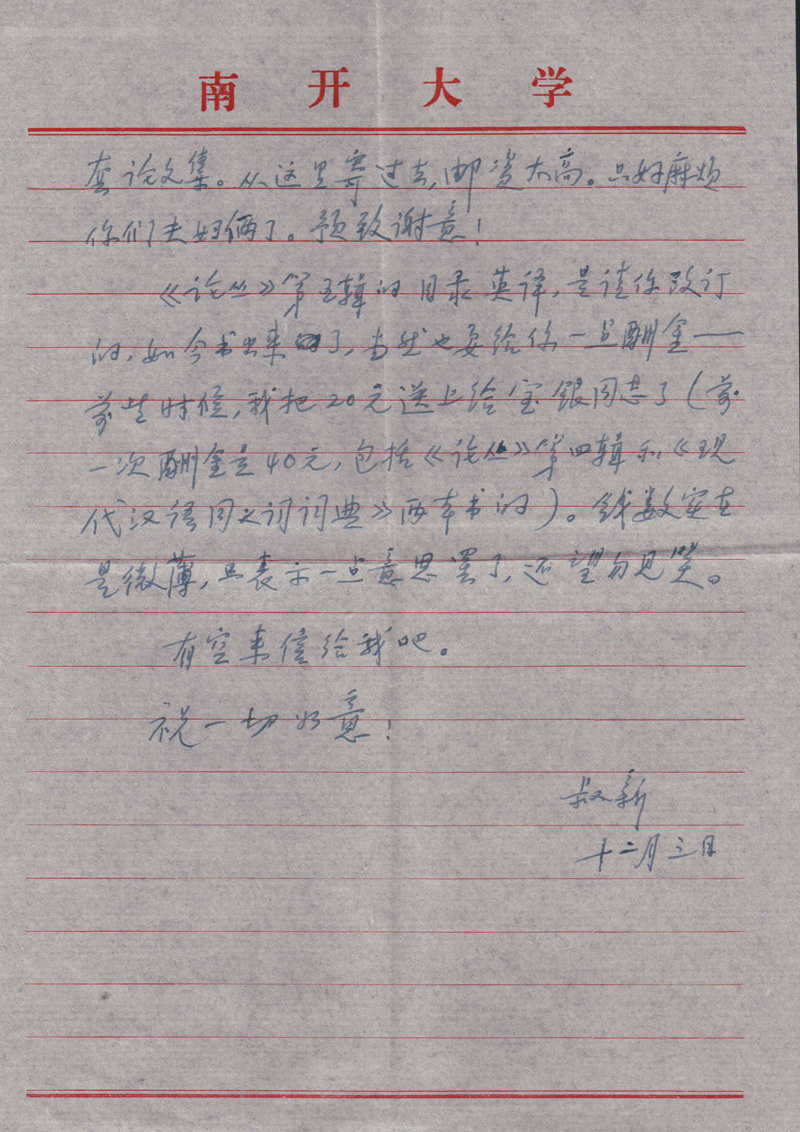 南开大学
套论文集。从这里寄过去,邮资太高。只好麻烦
你们夫妇俩了。预致谢意!
《论丛》第五辑的目录英译,是请你改订
的,如今书出来了,当然也要给你一点酬金——
前些时候,我把20元送上给宝银同志了(前
一次酬金是40元,包括《论丛》第四辑和《现
代汉语同义词词典》两本书的)。钱数实在
是微薄,只表示一点意思罢了,还望勿见笑。
有空来信给我吧。
祝一切如意!
叔新
十二月三日